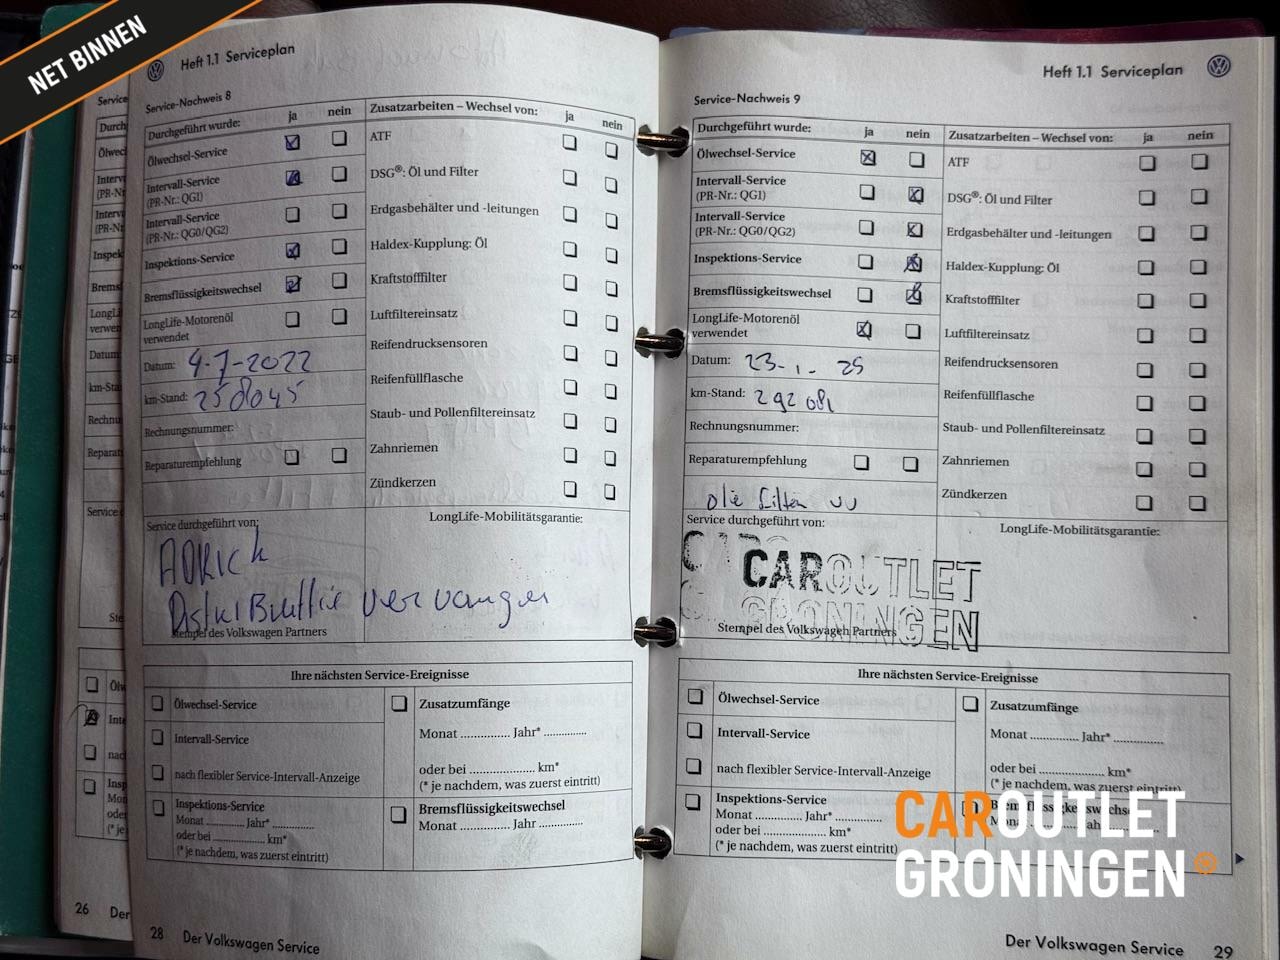 NET BINNEN
Heft 1.1 Serviceplan
Service-Nachweis 8
Durchgeführt wurde: ja nein
Ölwechsel-Service
Intervall-Service
(PR-Nr.: QG1)
Intervall-Service
(PR-Nr.: QG0/QG2)
Inspektions-Service
Bremsflüssigkeitswechsel
LongLife-Motorenöl
verwendet
Datum: 4-7-2022
km-Stand: 258045
Rechnungsnummer:
Reparaturempfehlung
Zusatzarbeiten – Wechsel von: ja nein
ATF
DSG®: Öl und Filter
Erdgasbehälter und -leitungen
Haldex-Kupplung: Öl
Kraftstofffilter
Luftfiltereinsatz
Reifendrucksensoren
Reifenfüllflasche
Staub- und Pollenfiltereinsatz
Zahnriemen
Zündkerzen
Service durchgeführt von:
LongLife-Mobilitätsgarantie:
Stempel des Volkswagen Partners
Ihre nächsten Service-Ereignisse
Ölwechsel-Service
Intervall-Service
nach flexibler Service-Intervall-Anzeige
Inspektions-Service
Monat ............ Jahr* ............
oder bei ............ km*
(* je nachdem, was zuerst eintritt)
Zusatzumfänge
Monat ............ Jahr* ............
oder bei ............ km*
(* je nachdem, was zuerst eintritt)
Bremsflüssigkeitswechsel
Monat ............ Jahr ............
26 Der
28 Der Volkswagen Service
Heft 1.1 Serviceplan
Service-Nachweis 9
Durchgeführt wurde: ja nein
Ölwechsel-Service
Intervall-Service
(PR-Nr.: QG1)
Intervall-Service
(PR-Nr.: QG0/QG2)
Inspektions-Service
Bremsflüssigkeitswechsel
LongLife-Motorenöl
verwendet
Datum: 23-1-25
km-Stand: 292081
Rechnungsnummer:
Reparaturempfehlung
Zusatzarbeiten – Wechsel von: ja nein
ATF
DSG®: Öl und Filter
Erdgasbehälter und -leitungen
Haldex-Kupplung: Öl
Kraftstofffilter
Luftfiltereinsatz
Reifendrucksensoren
Reifenfüllflasche
Staub- und Pollenfiltereinsatz
Zahnriemen
Zündkerzen
Service durchgeführt von:
LongLife-Mobilitätsgarantie:
CAROUTLET
GRONINGEN
Stempel des Volkswagen Partners
Ihre nächsten Service-Ereignisse
Ölwechsel-Service
Intervall-Service
nach flexibler Service-Intervall-Anzeige
Inspektions-Service
Monat ............ Jahr* ............
oder bei ............ km*
(* je nachdem, was zuerst eintritt)
Zusatzumfänge
Monat ............ Jahr* ............
oder bei ............ km*
(* je nachdem, was zuerst eintritt)
Bremsflüssigkeitswechsel
CAROUTLET
GRONINGEN
Der Volkswagen Service 29